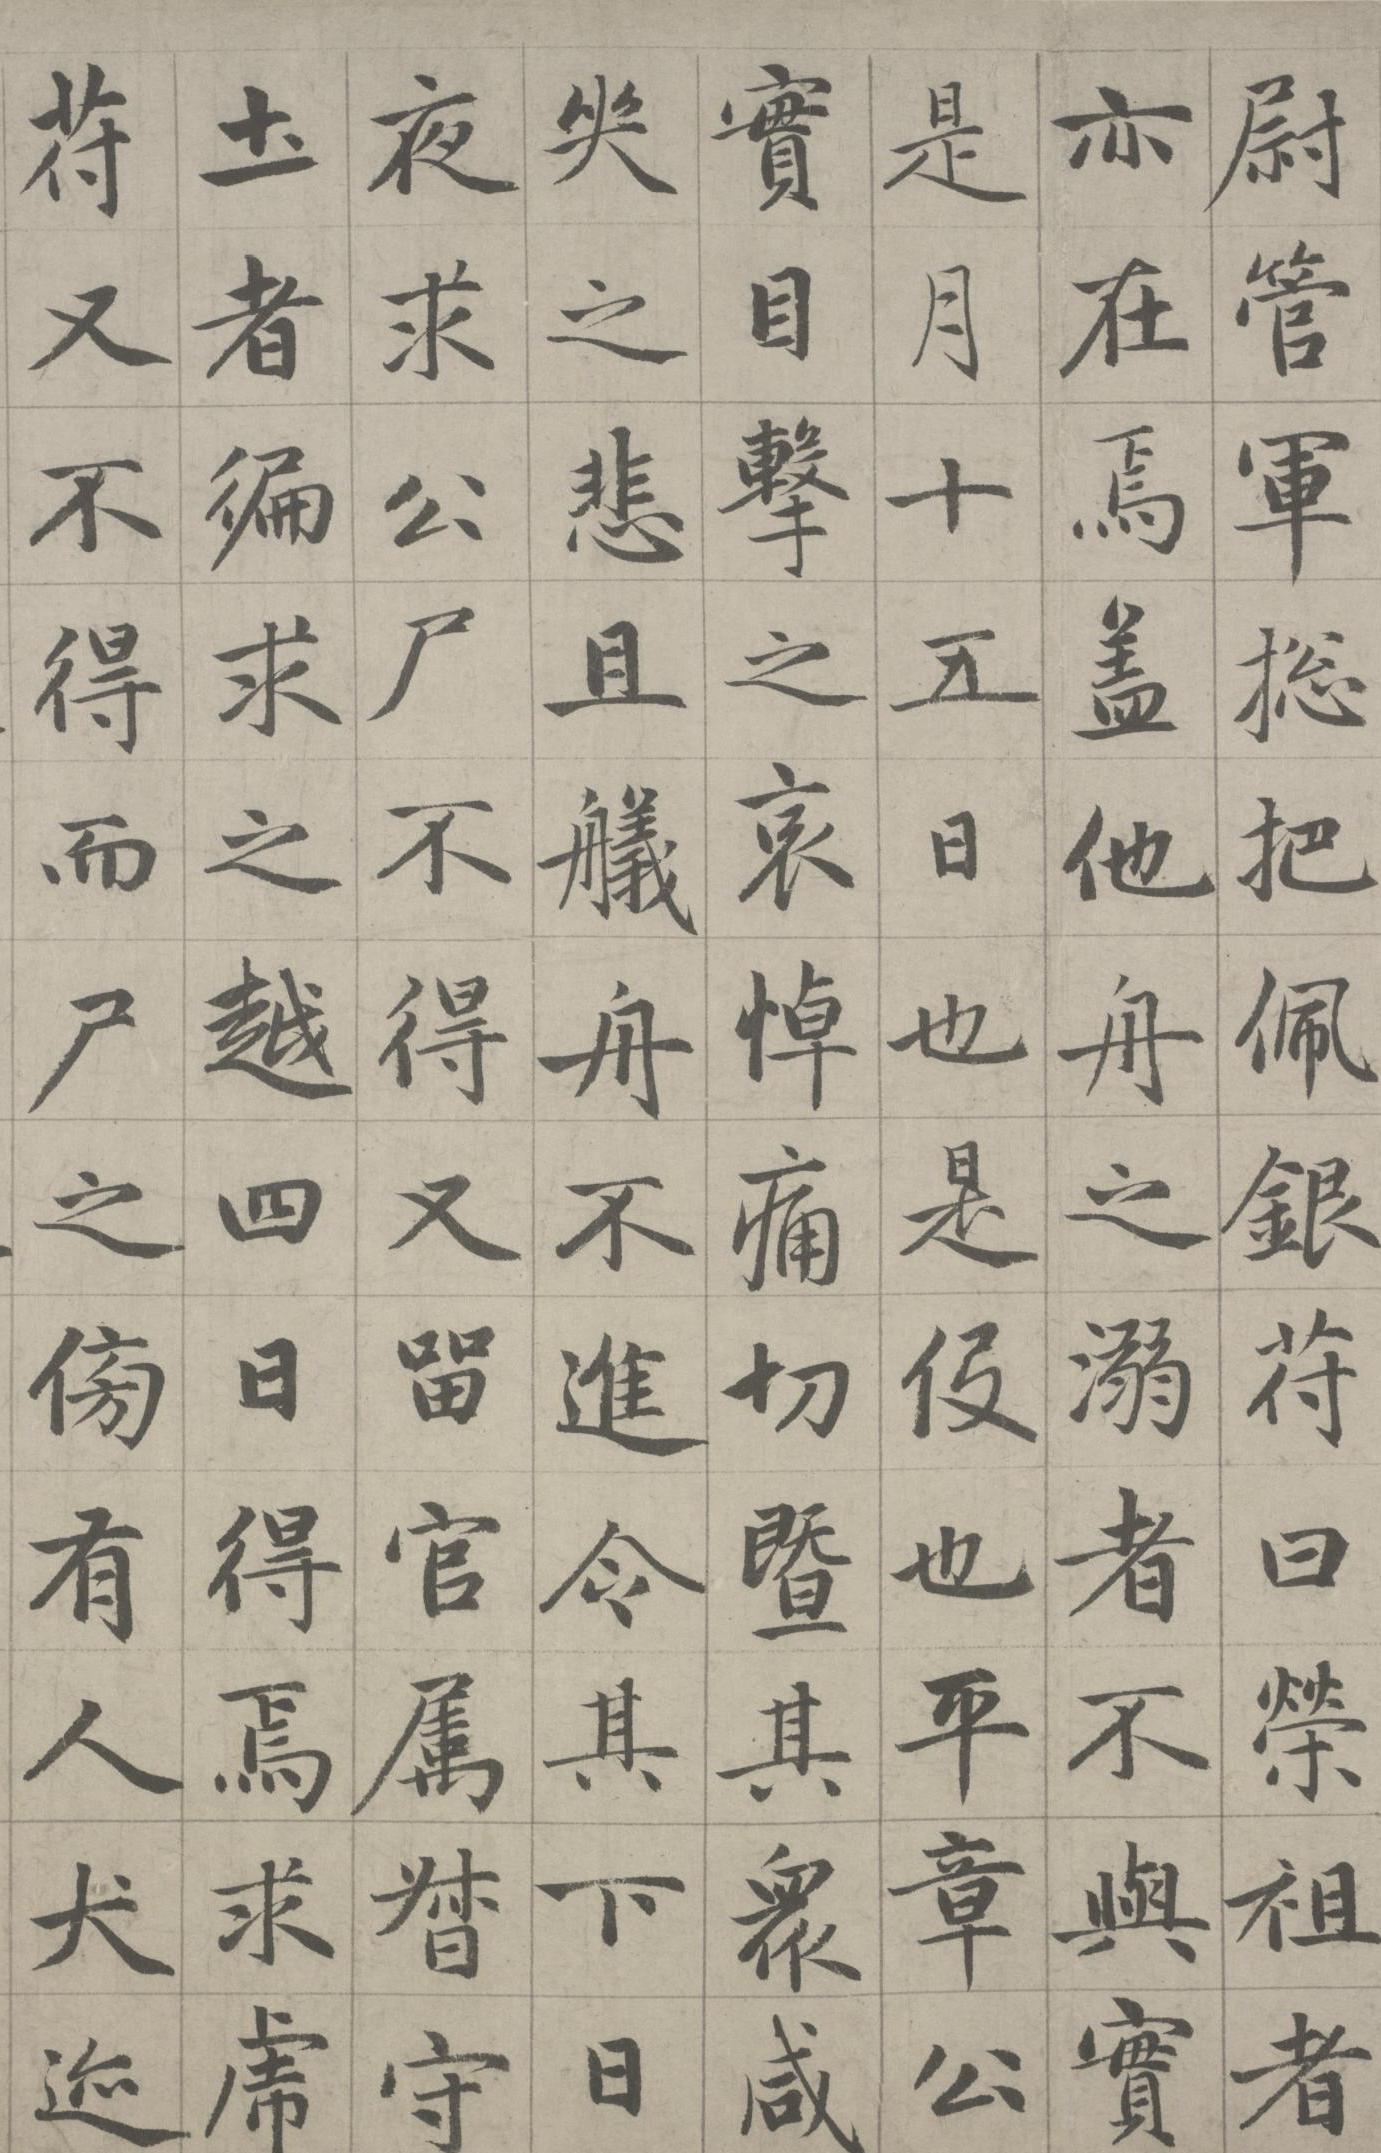 尉管軍捴把佩銀苻曰榮祖者
亦在焉盖他舟之溺者不與實
是月十五日也是伇也平章公
實目擊之哀悼痛切暨其衆咸
哭之悲且艤舟不進令其下日
夜求公尸不得又留官属督守
土者徧求之越四日得焉求虎
苻又不得而尸之傍有人犬迹